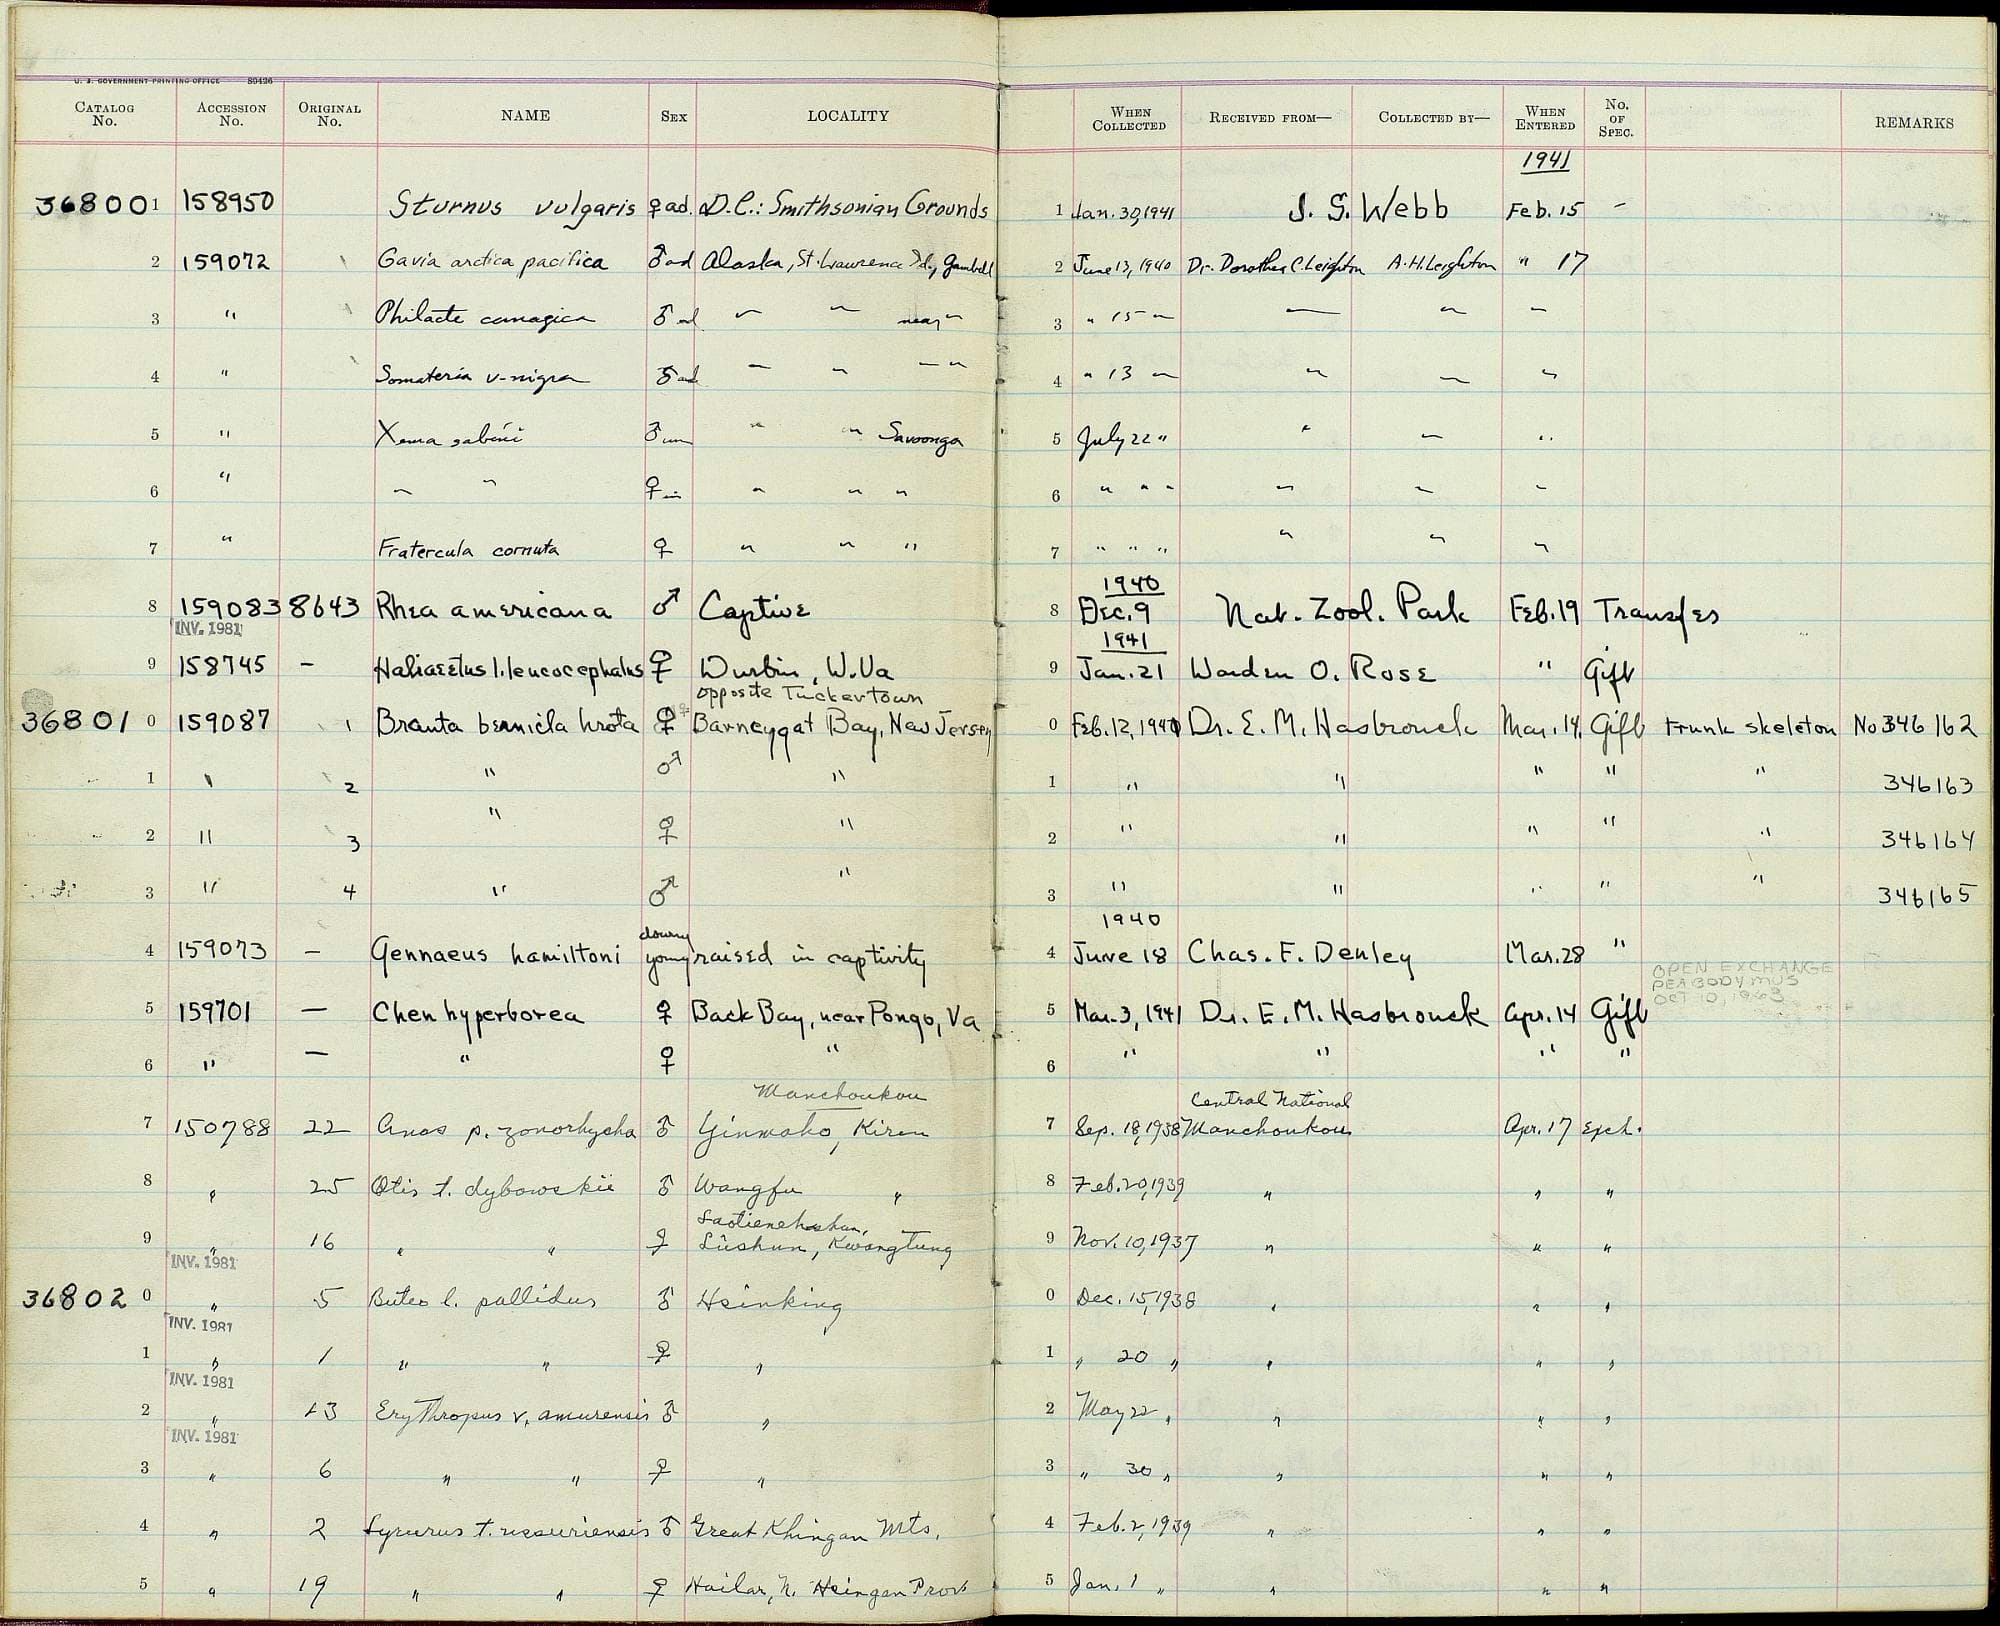 U. S. GOVERNMENT PRINTING OFFICE 89426
CATALOG No. ACCESSION No. ORIGINAL No. NAME SEX LOCALITY WHEN COLLECTED RECEIVED FROM— COLLECTED BY— WHEN ENTERED No. OF SPEC. REMARKS
1941
368001 158950 Sturnus vulgaris ♀ ad. D.C.: Smithsonian Grounds 1 Jan. 30, 1941 J. S. Webb Feb. 15 –
2 159072 Gavia arctica pacifica ♂ ad Alaska, St. Lawrence Id., Gambell 2 June 13, 1940 Dr. Dorothea C. Leighton A. H. Leighton " 17
3 " Philacte canagica ♂ ad " " near " 3 " 15 " " " "
4 " Somateria v-nigra ♂ ad " " " " 4 " 13 " " " "
5 " Xema sabini ♂ im " " Savoonga 5 July 22 " " " "
6 " " " ♀ im " " " 6 " " " " " "
7 " Fratercula cornuta ♀ " " " 7 " " " " " "
1940
8 159083 8643 Rhea americana ♂ Captive 8 Dec. 9 Nat. Zool. Park Feb. 19 Transfer
INV. 1981
1941
9 158745 – Haliaeetus l. leucocephalus ♀ Durbin, W. Va 9 Jan. 21 Warden O. Rose " Gift
opposite Tuckertown
368010 159087 1 Branta bernicla hrota ♀ Barneygat Bay, New Jersey 0 Feb. 12, 1941 Dr. E. M. Hasbrouck Mar. 14, Gift trunk skeleton No 346162
1 " 2 " ♂ " 1 " " " " " 346163
2 " 3 " ♀ " 2 " " " " " 346164
3 " 4 " ♂ " 3 " " " " " 346165
1940
4 159073 – Gennaeus hamiltoni downy young raised in captivity 4 June 18 Chas. F. Denley Mar. 28 "
OPEN EXCHANGE
PEABODY MUS
OCT 10, 1963
5 159701 – Chen hyperborea ♀ Back Bay, near Pongo, Va 5 Mar. 3, 1941 Dr. E. M. Hasbrouck Apr. 14 Gift
6 " – " ♀ " 6 " " " "
Manchoukou Central National
7 150788 22 Anas p. zonorhyncha ♂ Yinmaho, Kirin 7 Sep. 18, 1938 Manchoukou Apr. 17 Exch.
8 " 25 Otis t. dybowskii ♂ Wangfu " 8 Feb. 20, 1939 " " "
Laotiehshan,
9 " 16 " " ♀ Lüshun, Kwangtung 9 Nov. 10, 1937 " " "
INV. 1981
368020 " 5 Buteo l. pallidus ♂ Hsinking 0 Dec. 15, 1938 " " "
INV. 1981
1 " 1 " " ♀ " 1 " 20 " " " "
INV. 1981
2 " 13 Erythropus v. amurensis ♂ " 2 May 22 " " " "
INV. 1981
3 " 6 " " ♀ " 3 " 30 " " " "
4 " 2 Lyrurus t. ussuriensis ♂ Great Khingan Mts. 4 Feb. 2, 1939 " " "
5 " 19 " " ♀ Hailar, N. Hsingan Prov. 5 Jan. 1 " " " "